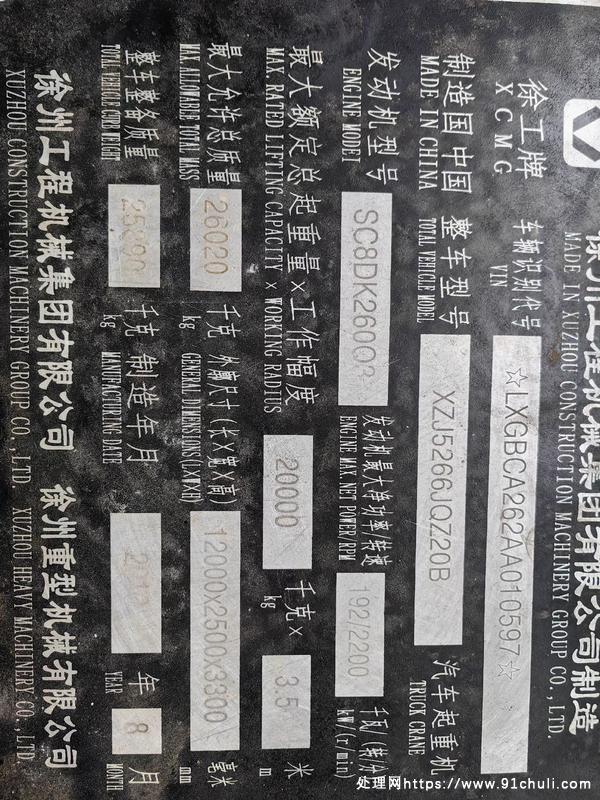 徐州工程机械集团有限公司制造
MADE IN XUZHOU CONSTRUCTION MACHINERY GROUP CO.,LTD.
徐工牌 车辆识别代号 ☆LXGBCA262AA010597☆
XCMG VIN
制造国中国 整车型号 XZJ5266JQZ20B 汽车起重机
MADE IN CHINA TOTAL VEHICLE MODEL TRUCK CRANE
发动机型号 SC8DK260Q3 发动机最大净功率/转速 192/2200 千瓦/(转/分)
ENGINE MODEL ENGINE MAX.NET POWER/RPM kW/(r/min)
最大额定总起重量×工作幅度 20000 千克× 3.5 米
MAX.RATED LIFTING CAPACITY × WORKING RADIUS kg m
最大允许总质量 26020 千克 外廓尺寸(长×宽×高) 12000x2500x3300 毫米
MAX.ALLOWABLE TOTAL MASS kg GENERAL DIMENSIONS(L×W×H) mm
整车整备质量 千克 制造年月 年 8 月
TOTAL VEHICLE CURB WEIGHT kg MANUFACTURING DATE YEAR MONTH
徐州工程机械集团有限公司 徐州重型机械有限公司
XUZHOU CONSTRUCTION MACHINERY GROUP CO.,LTD XUZHOU HEAVY MACHINERY CO.,LTD.
处理网https://www.91chuli.com